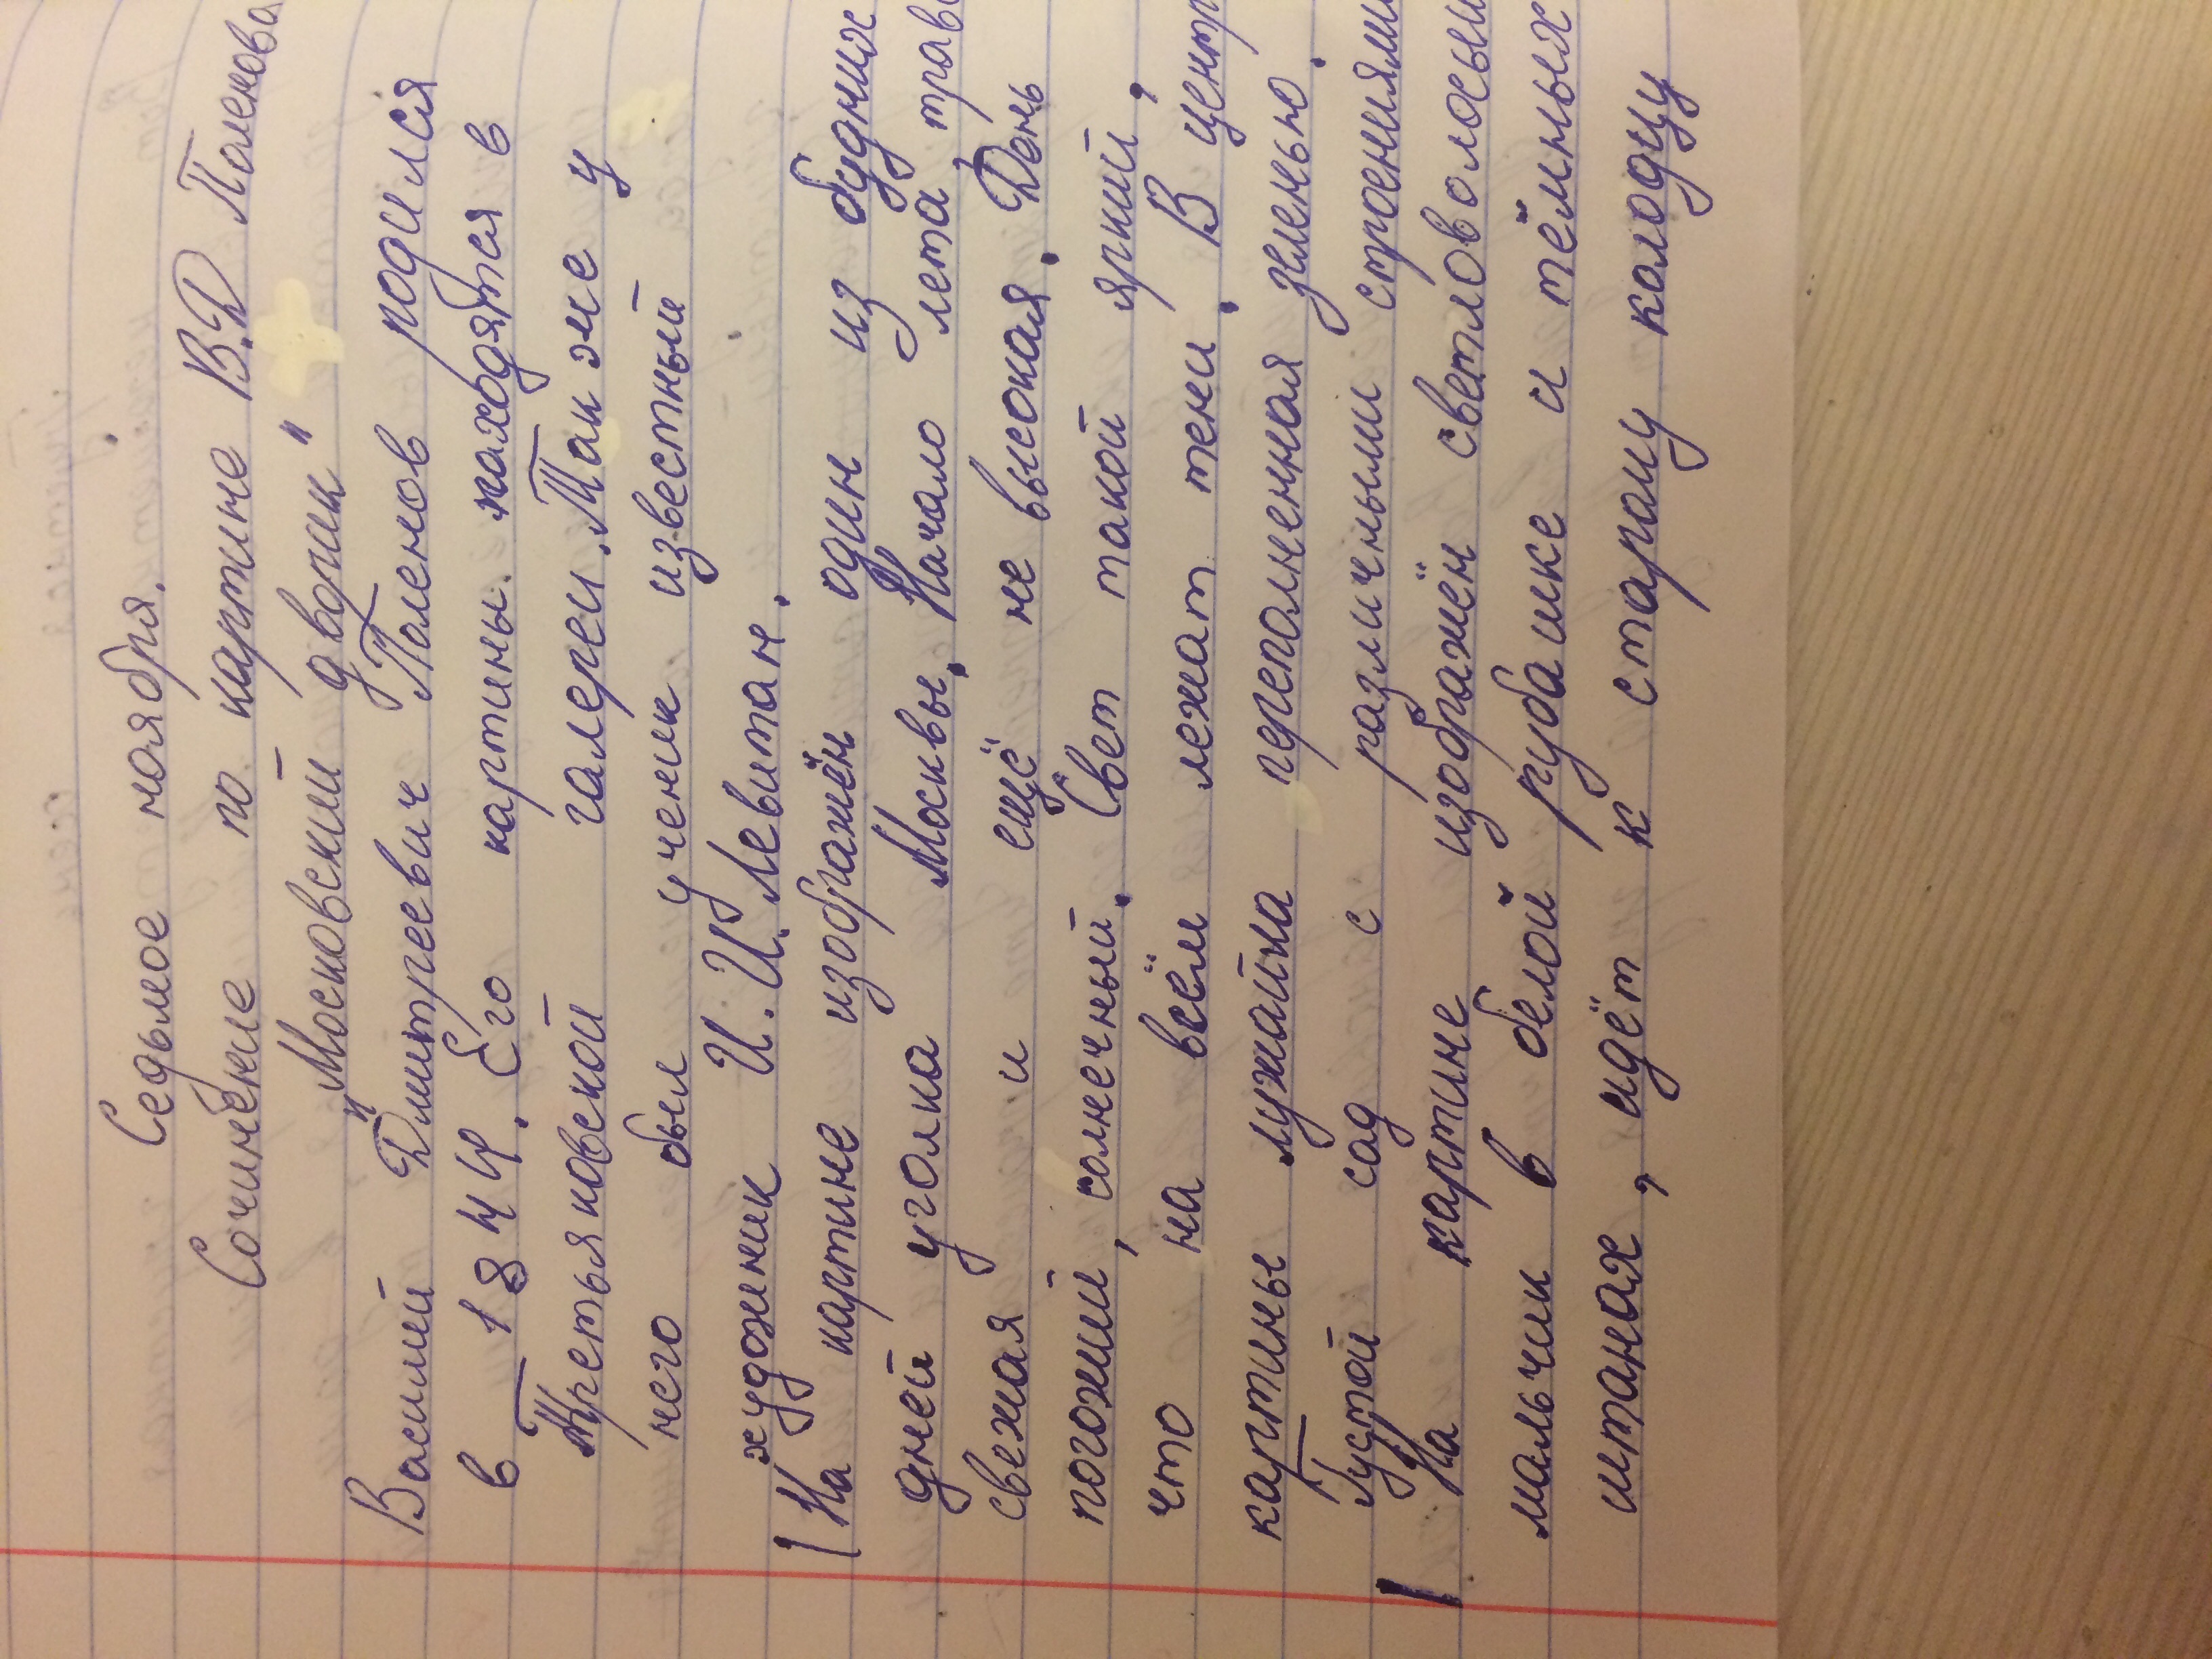 Седьмое ноября.
Сочинение по картине В.Д Поленова
"Московский дворик"
Василий Дмитреевич Поленов родился
в 1844. Его картины находятся в
Третьяковской галереи. Так же у
него был ученик известный
художник И. И. Левитан.
На картине изображён один из будних
дней уголка Москвы. Начало лета, трав
свежая и ещё не высокая. День
погожий, солнечный. Свет такой яркий,
что на всём лежат тени. В центр
картины лужайка переполненная зеленью.
Густой сад с различными строениями
На картине изображён светловолосый
мальчик в белой рубашке и тёмных
штанах, идёт к старому колодцу